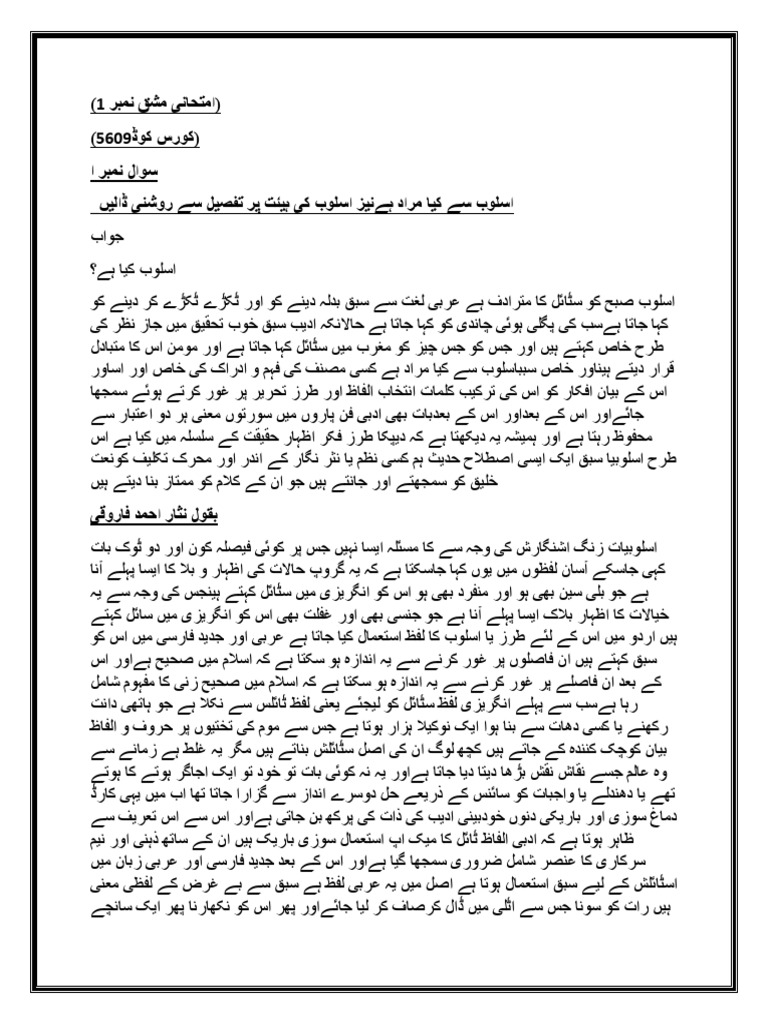 (امتحانی مشق نمبر 1)
(کورس کوڈ5609)
سوال نمبر ا
اسلوب سے کیا مراد ہےنیز اسلوب کی ہیئت پر تفصیل سے روشنی ڈالیں
جواب
اسلوب کیا ہے؟
اسلوب صبح کو سٹائل کا مترادف ہے عربی لغت سے سبق بدلہ دینے کو اور ٹکڑے ٹکڑے کر دینے کو
کہا جاتا ہےسب کی پگلی ہوئی چاندی کو کہا جاتا ہے حالانکہ ادیب سبق خوب تحقیق میں جاز نظر کی
طرح خاص کہتے ہیں اور جس کو جس چیز کو مغرب میں سٹائل کہا جاتا ہے اور مومن اس کا متبادل
قرار دیتے ہیناور خاص سبباسلوب سے کیا مراد ہے کسی مصنف کی فہم و ادراک کی خاص اور اساور
اس کے بیان افکار کو اس کی ترکیب کلمات انتخاب الفاظ اور طرز تحریر پر غور کرتے ہوئے سمجھا
جائےاور اس کے بعداور اس کے بعدبات بھی ادبی فن پاروں میں سورتوں معنی ہر دو اعتبار سے
محفوظ رہتا ہے اور ہمیشہ یہ دیکھتا ہے کہ دیپکا طرز فکر اظہار حقیقت کے سلسلہ میں کیا ہے اس
طرح اسلوبیا سبق ایک ایسی اصطلاح حدیث ہم کسی نظم یا نثر نگار کے اندر اور محرک تکلیف کونعت
خلیق کو سمجھتے اور جانتے ہیں جو ان کے کلام کو ممتاز بنا دیتے ہیں
بقول نثار احمد فاروقی
اسلوبیات زنگ اشنگارش کی وجہ سے کا مسئلہ ایسا نہیں جس پر کوئی فیصلہ کون اور دو ٹوک بات
کہی جاسکے آسان لفظوں میں یوں کہا جاسکتا ہے کہ یہ گروپ حالات کی اظہار و بلا کا ایسا پہلے آنا
ہے جو بلی سین بھی ہو اور منفرد بھی ہو اس کو انگریزی میں سٹائل کہتے ہینجس کی وجہ سے یہ
خیالات کا اظہار بلاک ایسا پہلے آنا ہے جو جنسی بھی اور غفلت بھی اس کو انگریزی میں سائل کہتے
ہیں اردو میں اس کے لئے طرز یا اسلوب کا لفظ استعمال کیا جاتا ہے عربی اور جدید فارسی میں اس کو
سبق کہتے ہیں ان فاصلوں پر غور کرنے سے یہ اندازہ ہو سکتا ہے کہ اسلام میں صحیح ہےاور اس
کے بعد ان فاصلے پر غور کرنے سے یہ اندازہ ہو سکتا ہے کہ اسلام میں صحیح زنی کا مفہوم شامل
رہا ہےسب سے پہلے انگریزی لفظ سٹائل کو لیجئے یعنی لفظ ٹائلس سے نکلا ہے جو ہاتھی دانت
رکھنے یا کسی دھات سے بنا ہوا ایک نوکیلا ہزار ہوتا ہے جس سے موم کی تختیوں پر حروف و الفاظ
بیان کوچک کنندہ کے جاتے ہیں کچھ لوگ ان کی اصل سٹائلش بناتے ہیں مگر یہ غلط ہے زمانے سے
وہ عالم جسے نقاش نقش بڑھا دیتا دیا جاتا ہےاور یہ نہ کوئی بات تو خود تو ایک اجاگر ہوتے کا ہوتے
تھے یا دھندلے یا واجبات کو سائنس کے ذریعے حل دوسرے انداز سے گزارا جاتا تھا اب میں یہی کارڈ
دماغ سوزی اور باریکی دنوں خودبینی ادیب کی ذات کی پرکھ بن جاتی ہےاور اس سے اس تعریف سے
ظاہر ہوتا ہے کہ ادبی الفاظ ٹائل کا میک اپ استعمال سوزی باریک ہیں ان کے ساتھ ذہنی اور نیم
سرکاری کا عنصر شامل ضروری سمجھا گیا ہےاور اس کے بعد جدید فارسی اور عربی زبان میں
اسٹائلش کے لیے سبق استعمال ہوتا ہے اصل میں یہ عربی لفظ ہے سبق سے بے غرض کے لفظی معنی
ہیں رات کو سونا جس سے اٹلی میں ڈال کرصاف کر لیا جائےاور پھر اس کو نکھارنا پھر ایک سانچے